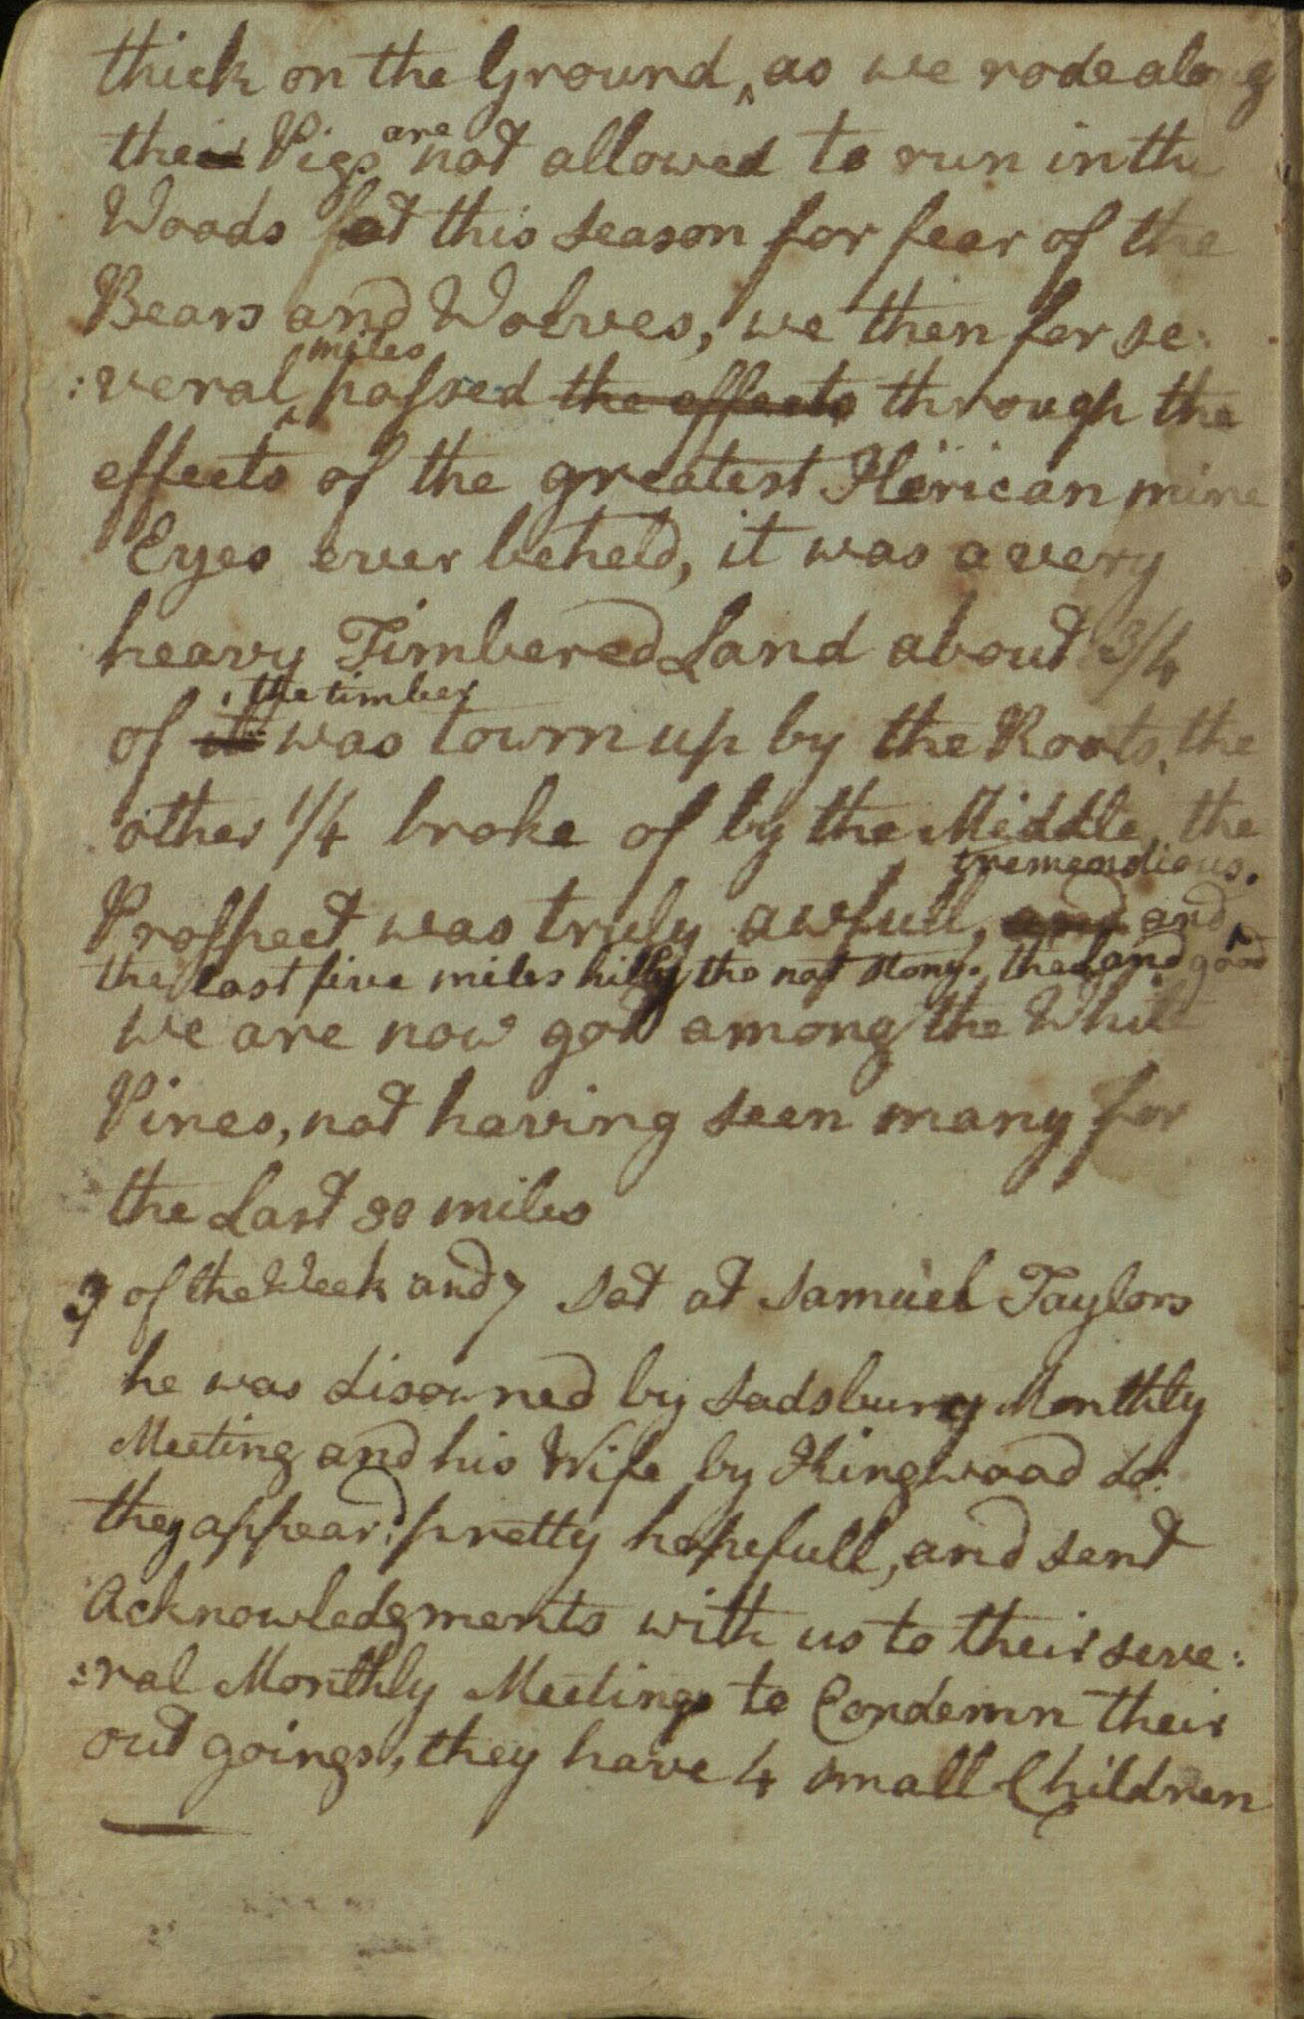 thick on the Ground, as we rode along
the Pigs are not allowed to run in the
Woods at this season for fear of the
Bears and Wolves, we then for se:
:veral miles passed the effects through the
effects of the greatest Herican mine
Eyes ever beheld, it was a very
heavy Timbered Land about 3/4
of it the timber was town up by the Roots, the
other 1/4 broke of by the Middle, the
tremendious.
Prosspect was truly awfull, and and
the last five miles hilly tho not stony. the Land good
we are now got among the White
Pines, not having seen many for
the Last 80 miles
3 of the Week and 7 Sat at Samuel Taylors
he was disowned by Sadsbury Monthly
Meeting and his Wife by Kingwood do:
they appeard pretty hopefull, and sent
Acknowledgments with us to their seve:
:ral Monthly Meetings to Condemn their
out goings, they have 4 small Children